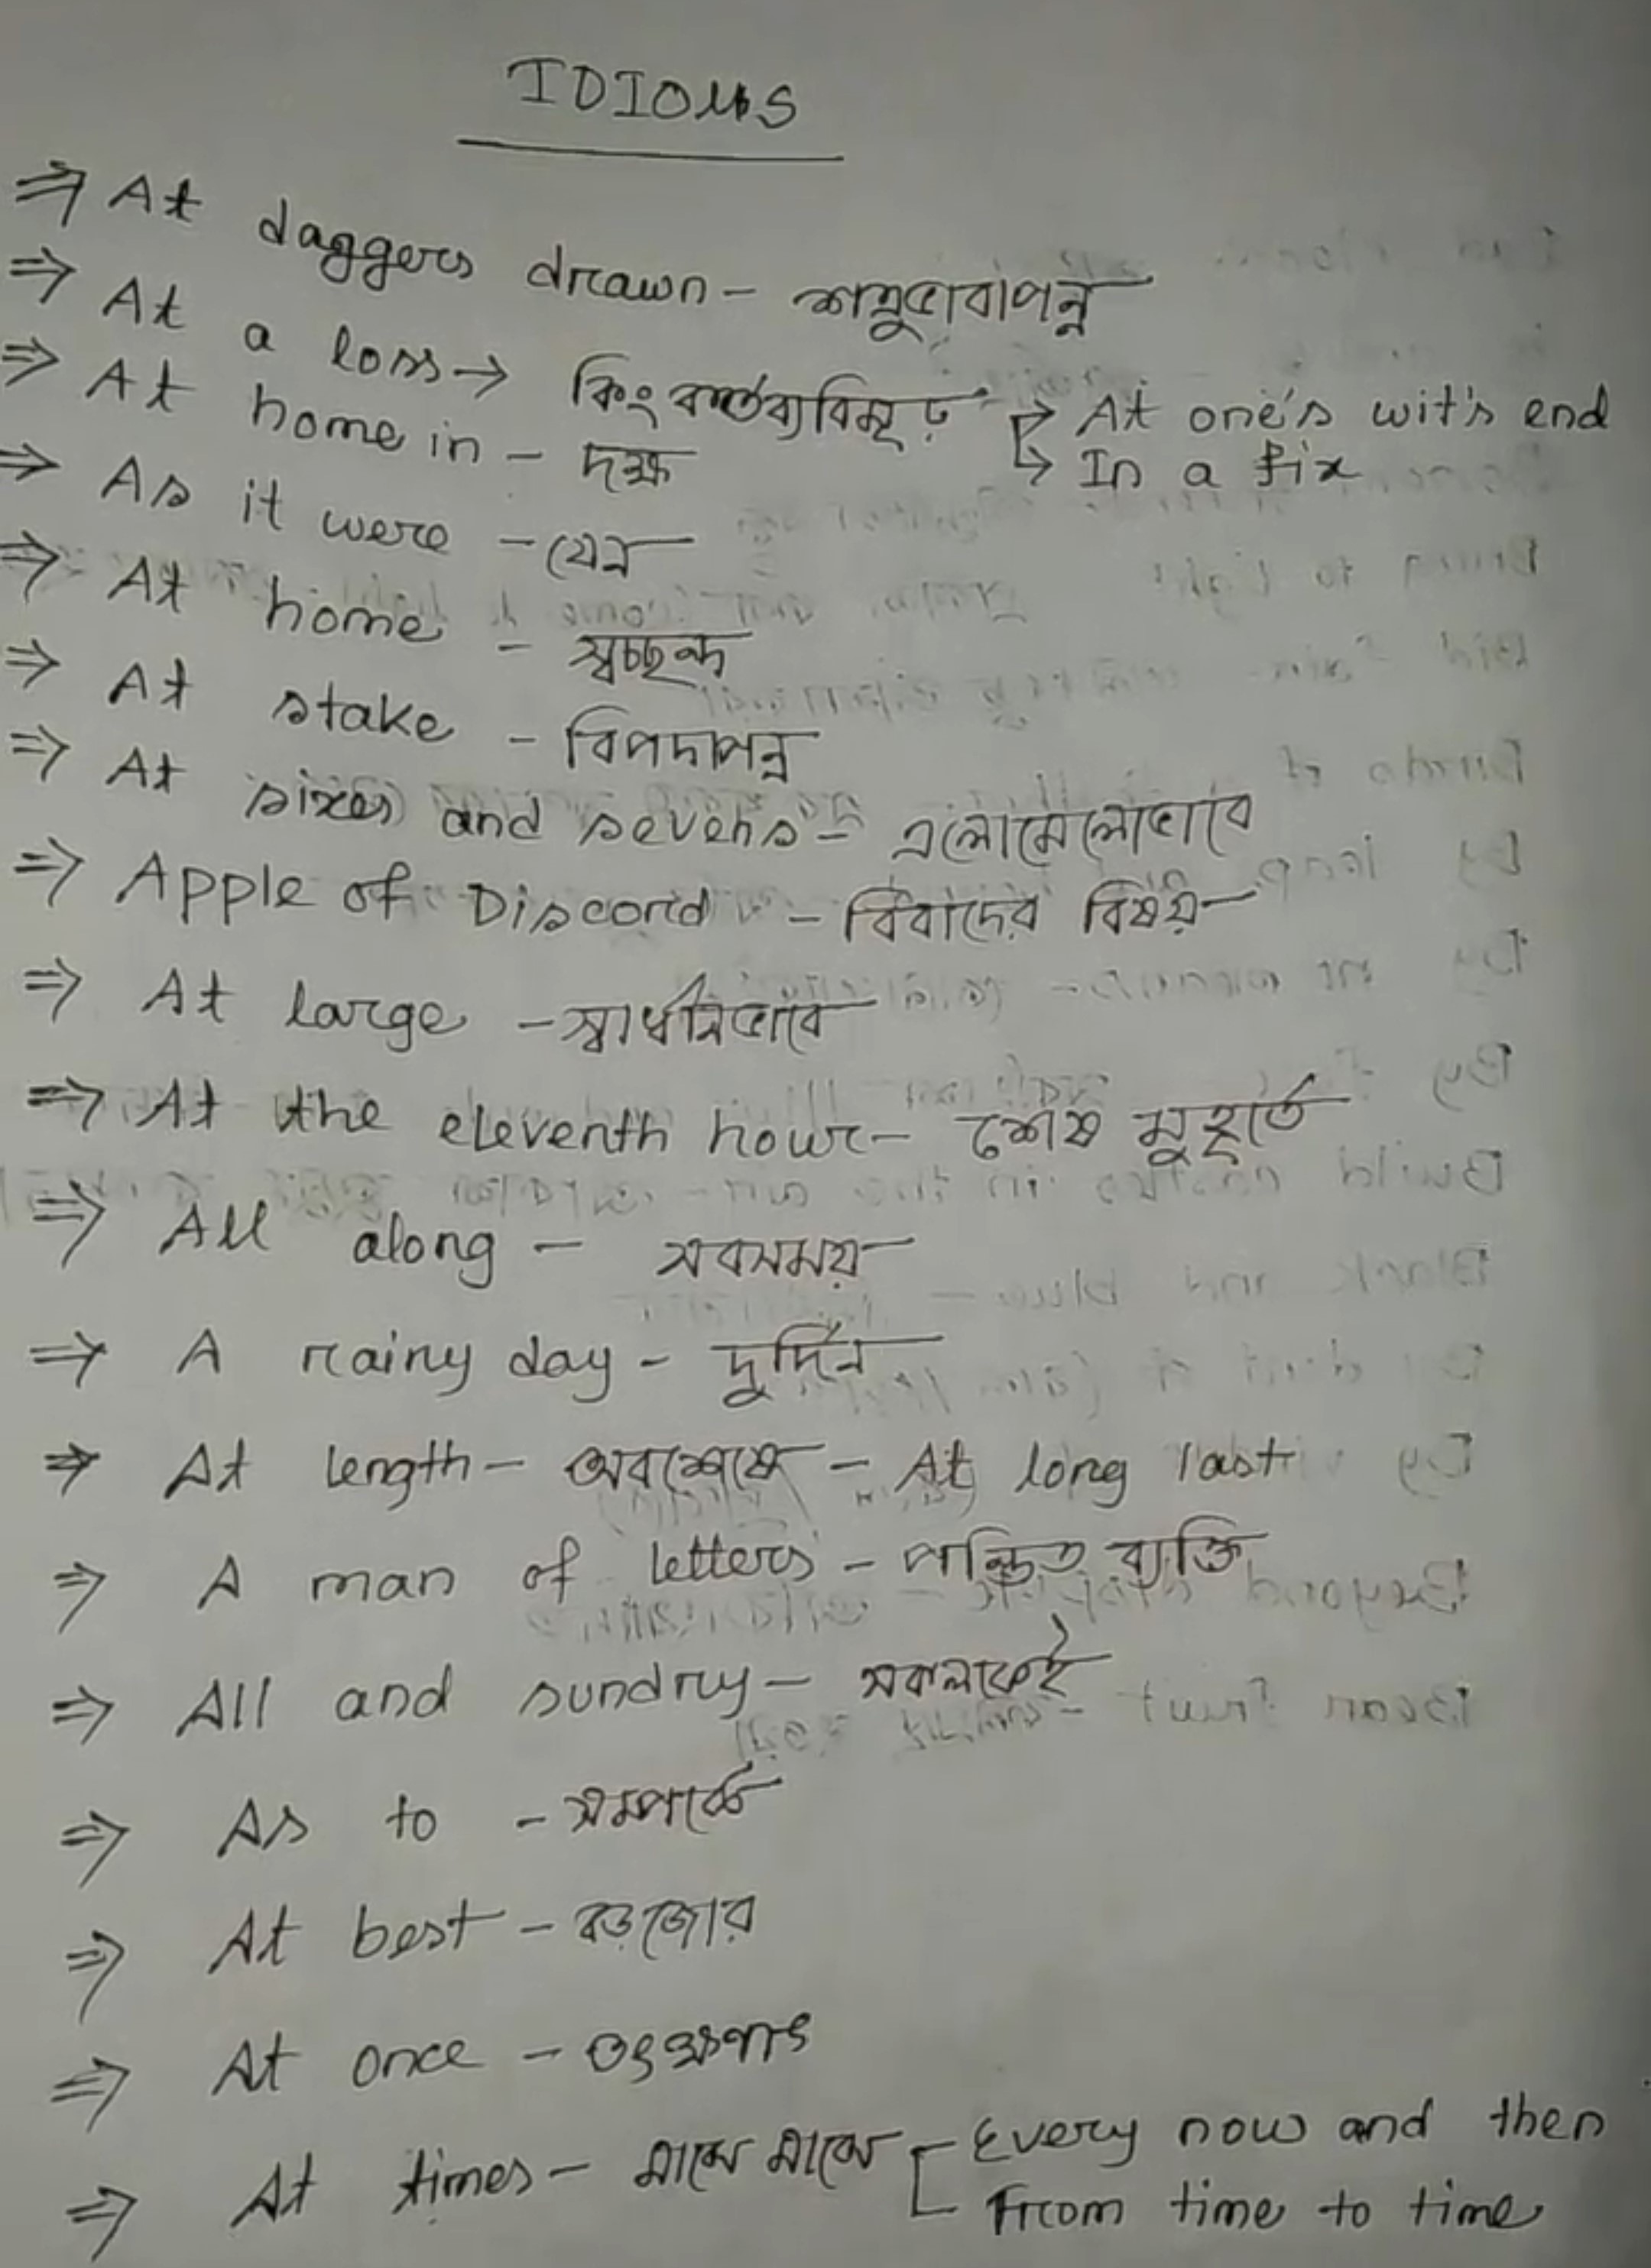 IDIOMS
⇒ At daggers drawn - শত্রুভাবাপন্ন
⇒ At a loss → কিংকর্তব্যবিমূঢ় → At one's wit's end
→ In a fix
⇒ At home in - দক্ষ
⇒ As it were - যেন
⇒ At home - স্বচ্ছন্দ
⇒ At stake - বিপদাপন্ন
⇒ At sixes and sevens - এলোমেলোভাবে
⇒ Apple of Discord - বিবাদের বিষয়
⇒ At large - স্বাধীনভাবে
⇒ At the eleventh hour - শেষ মুহূর্তে
⇒ All along - সবসময়
⇒ A rainy day - দুর্দিন
⇒ At length - অবশেষে - At long last
⇒ A man of letters - পন্ডিত ব্যক্তি
⇒ All and sundry - সকলকেই
⇒ As to - সম্পর্কে
⇒ At best - বড়জোর
⇒ At once - তৎক্ষণাৎ
⇒ At times - মাঝে মাঝে - Every now and then
From time to time